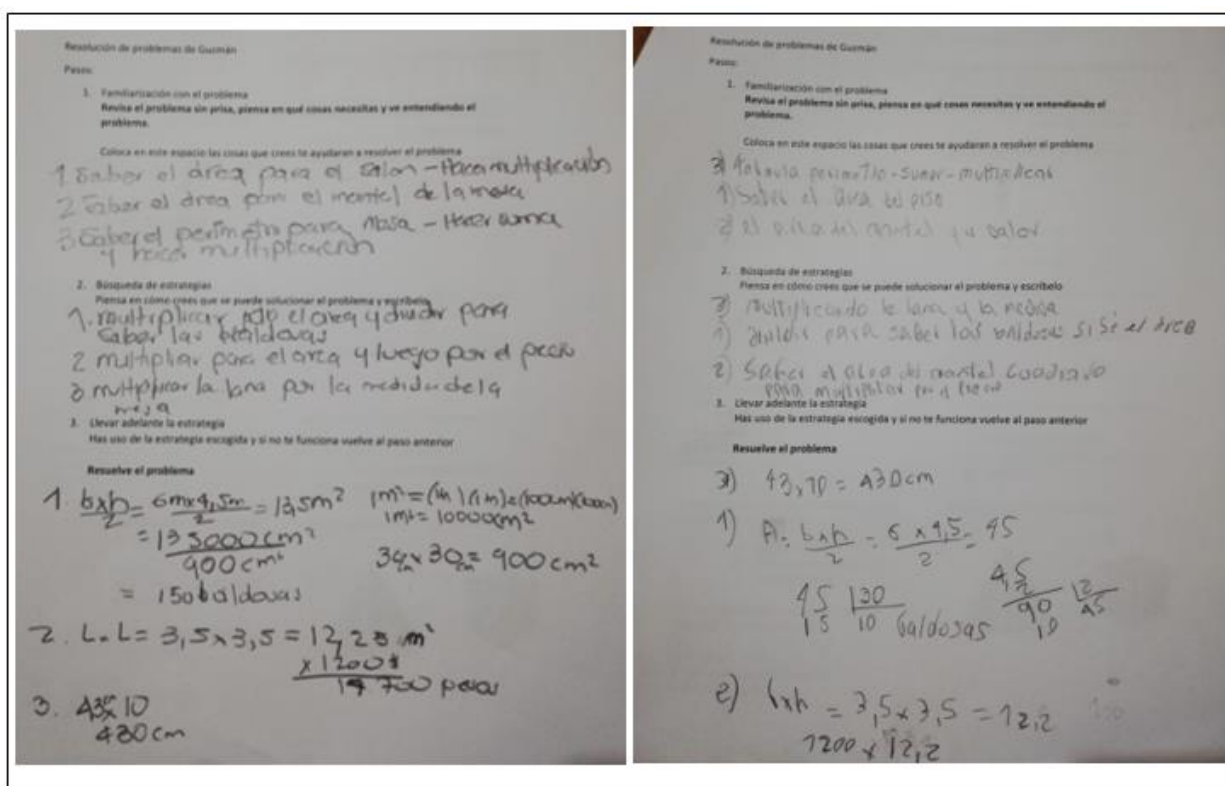 Resolución de problemas de Guzmán
Pasos:
1. Familiarización con el problema
Revisa el problema sin prisa, piensa en qué cosas necesitas y ve entendiendo el
problema.
Coloca en este espacio las cosas que crees te ayudaran a resolver el problema
1 Saber el área para el salon - Hacer multiplicación
2 Saber el área para el mantel de la mesa
3 Saber el perímetro para Mesa - Hacer suma
y hacer multiplicación
2. Búsqueda de estrategias
Piensa en cómo crees que se puede solucionar el problema y escríbelo
1. multiplicar el area y dividir para
saber las baldosas
2 multipliar para el area y luego por el precio
3 multiplicar la lana por la medida de la
mesa
3. Llevar adelante la estrategia
Has uso de la estrategia escogida y si no te funciona vuelve al paso anterior
Resuelve el problema
1. bxh/2 = 6mx4,5m/2 = 13,5m² 1m²=(1m)(1m)=(100cm)(100cm)
1m²= 10000cm²
= 135000cm²/900cm² 30cm x 30cm = 900cm²
= 150 baldosas
2. L.L = 3,5x3,5 = 12,25 m²
x 1200$
14700 pesos
3. 43x10
430cm
Resolución de problemas de Guzmán
Pasos:
1. Familiarización con el problema
Revisa el problema sin prisa, piensa en qué cosas necesitas y ve entendiendo el
problema.
Coloca en este espacio las cosas que crees te ayudaran a resolver el problema
3) formula perimetro - sumar - multiplicar
1) Saber el área del piso
2) el area del mantel y valor
2. Búsqueda de estrategias
Piensa en cómo crees que se puede solucionar el problema y escríbelo
3) multiplicando la lana y la medida
1) dividir para saber las baldosas si sé el área
2) Saber el area del mantel cuadrado
para multiplicar por el precio
3. Llevar adelante la estrategia
Has uso de la estrategia escogida y si no te funciona vuelve al paso anterior
Resuelve el problema
3) 43,10 = 430cm
1) A= bxh/2 = 6 x 4,5/2 = 45
45 |30
15 10 baldosas
90 |2
10 45
2) bxh = 3,5x3,5 = 12,2
1200 x 12,2